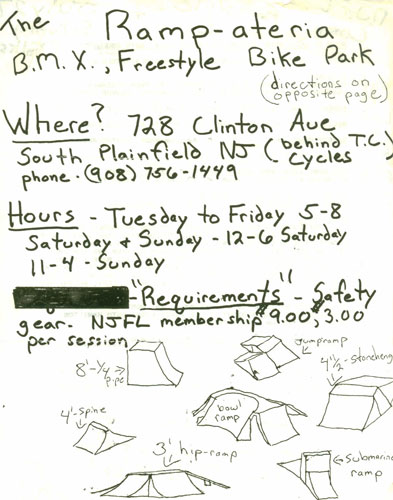 The Ramp-ateria
B.M.X., Freestyle Bike Park
(directions on
opposite page)
Where? 728 Clinton Ave
South Plainfield NJ (behind T.C.
Cycles)
phone - (908) 756-1449
Hours - Tuesday to Friday 5-8
Saturday & Sunday - 12-6 Saturday
11-4 - Sunday
- "Requirements" - Safety
gear. NJFL membership 9.00, 3.00
per session
jumpramp
8' - 1/4 pipe
4 1/2 - Stoneheng
4' - spine
bowl
ramp
3' hip-ramp
Submarine
ramp